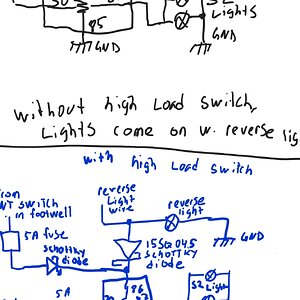 85
GND
Lights
GND
without high Load switch
Lights come on w. reverse
with high Load switch
reverse
Light
wire
reverse
light
GND
switch
in footwell
5A fuse
schottky
diode
15SQ045
schottky
diode
5A
86
S2
Light